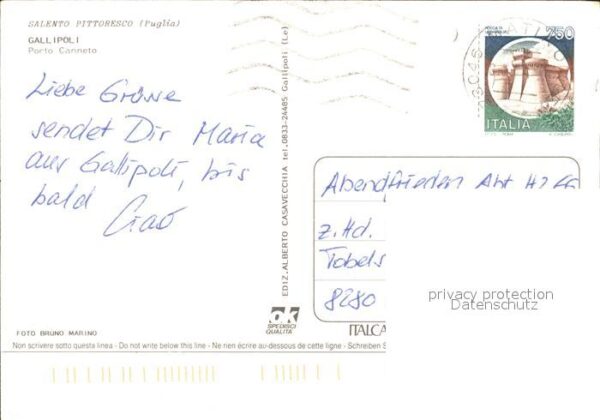 SALENTO PITTORESCO (Puglia)
GALLIPOLI
Porto Canneto
Liebe Grüsse
sendet Dir Maria
aus Gallipoli, bis
bald Ciao
EDIZ. ALBERTO CASAVECCHIA tel. 0833-24485 Gallipoli (Le)
750
ITALIA
Abendfrieden Abt
z.Hd.
Tobels
8280
privacy protection
Datenschutz
ok
SPEDISCI
QUALITÀ
ITALCA
FOTO BRUNO MARINO
Non scrivere sotto questa linea - Do not write below this line - Ne rien écrire au-dessous de cette ligne - Schreiben S